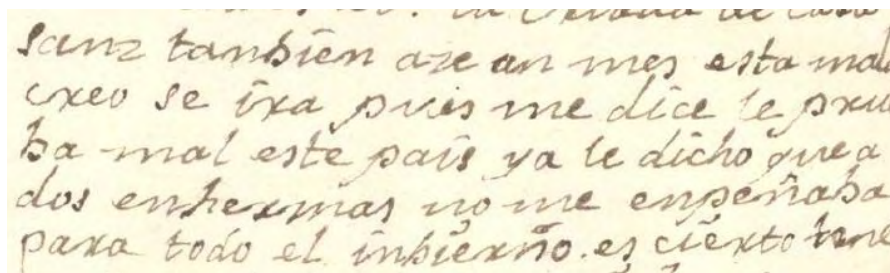 la criada de casa
sanz tanbien aze un mes esta mal
creo se ira pues me dice le pru
ba mal este pais ya le dicho que a
dos enhermas no me enpeñaba
para todo el inbierño. es cierto tene